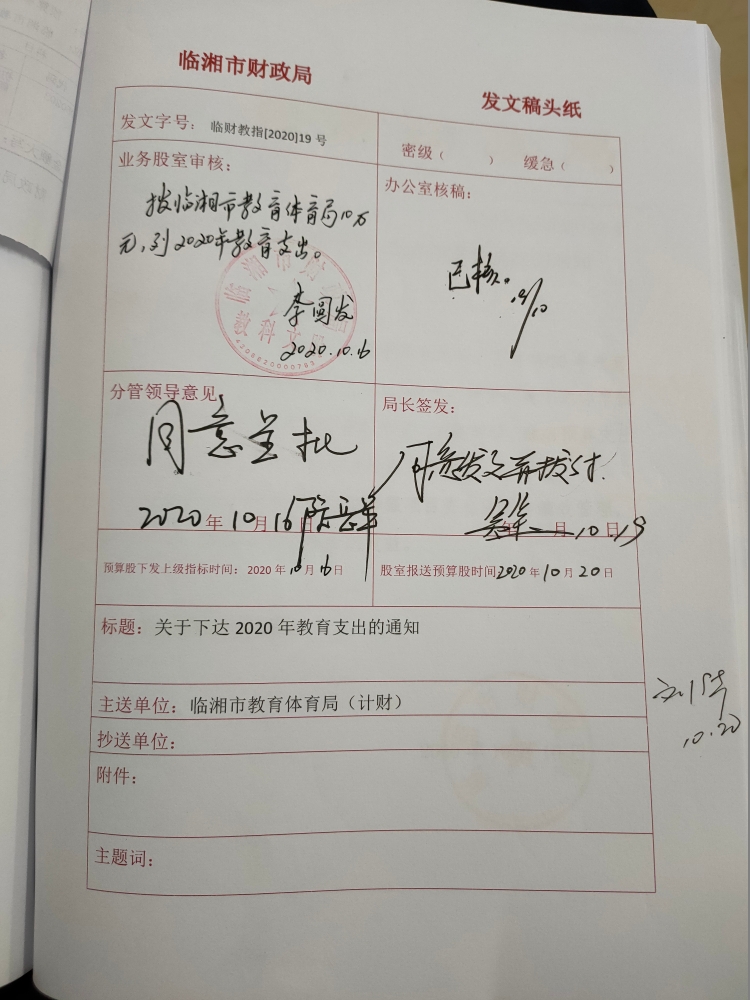 临湘市财政局
发文稿头纸
发文字号： 临财教指[2020]19 号
密级（ ） 缓急（ ）
业务股室审核：
拨临湘市教育体育局10万
元，列2020年教育支出。
李
2020.10.16
办公室核稿：
已核。
分管领导意见
同意呈批
2020年10月16日
局长签发：
同意发文并拨付.
月10.19日
预算股下发上级指标时间：2020年10月16日
股室报送预算股时间2020年10月20日
标题：关于下达 2020 年教育支出的通知
主送单位：临湘市教育体育局（计财）
10.20
抄送单位：
附件：
主题词：